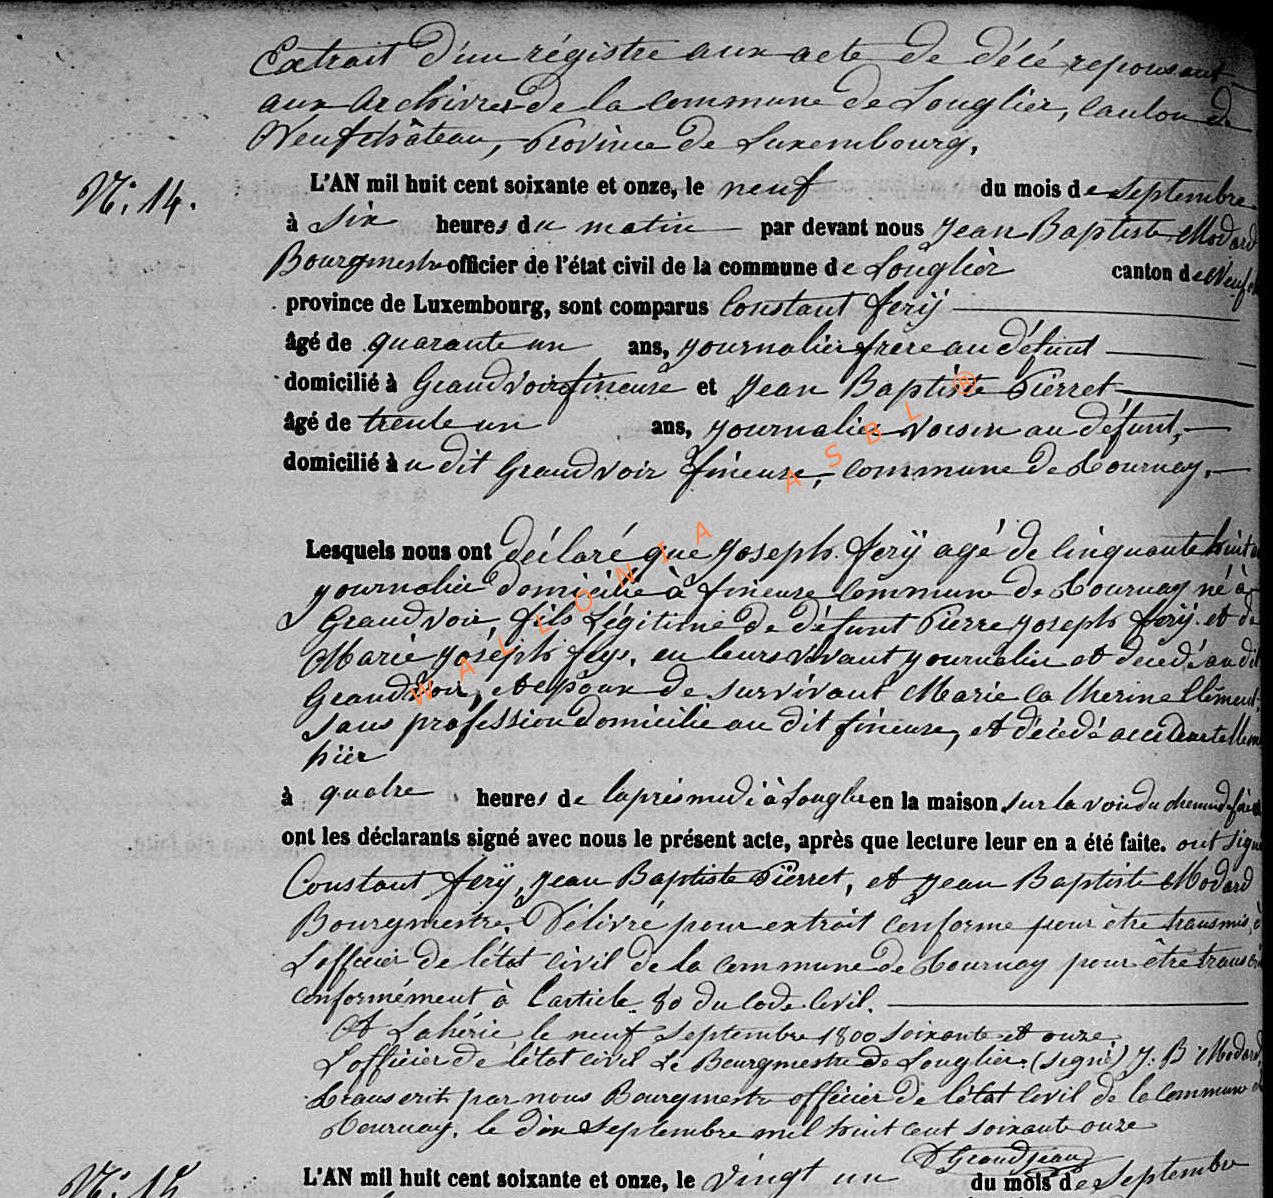 Extrait d'un régistre aux acte de décé reposant
aux Archives de la commune de Longlier, canton de
Neufchâteau, Province de Luxembourg.
N.º 14.
L'AN mil huit cent soixante et onze, le neuf du mois de septembre
à six heures du matin par devant nous Jean Baptiste Modard
Bourgmestre officier de l'état civil de la commune de Longlier canton de Neufch
province de Luxembourg, sont comparus Constant ferÿ
âgé de quarante un ans, journalier frère au défunt
domicilié à Grandvoir fineuse et Jean Baptiste Pierret
âgé de trente un ans, journalier voisin au défunt,
domicilié à u dit Grandvoir fineuse, commune de Tournay.
Lesquels nous ont déclaré que Joseph ferÿ agé de cinquante huit
journalier domicilié à fineuse commune de Tournay né à
Grandvoir, fils Légitime de défunt Pierre Joseph ferÿ et de
Marie Joséph feys, en leurs vivant journalier et décédé au dit
Grandvoir, et epoux de survivant Marie Catherine Clément
sans profession domicilié au dit fineuse, et décédé accidentellem
hièr
à quatre heures de laprésmedi à Longlier en la maison sur la voie du chemin de fer
ont les déclarants signé avec nous le présent acte, après que lecture leur en a été faite. ont signé
Constant ferÿ, Jean Baptiste Pierret, et Jean Baptiste Modard
Bourgmestre. Délivré pour extrait conforme pour être transmis à
Lofficier de l'état civil de la commune de Tournay pour être transcri
conformément à l'article 80 du Code Civil.
A Lahérie le neuf septembre 1800 soixante et onze.
Lofficier de l'état civil Le Bourgmestre de Longlier. (signé) J. B. Modard
Transcrit par nous Bourgmestre officier de létat civil de la commune de
Tournay. le dix septembre mil huit cent soixante onze
Grandjean
N.º 15
L'AN mil huit cent soixante et onze, le vingt un du mois de Septembre
WALLONIA ASBL ®